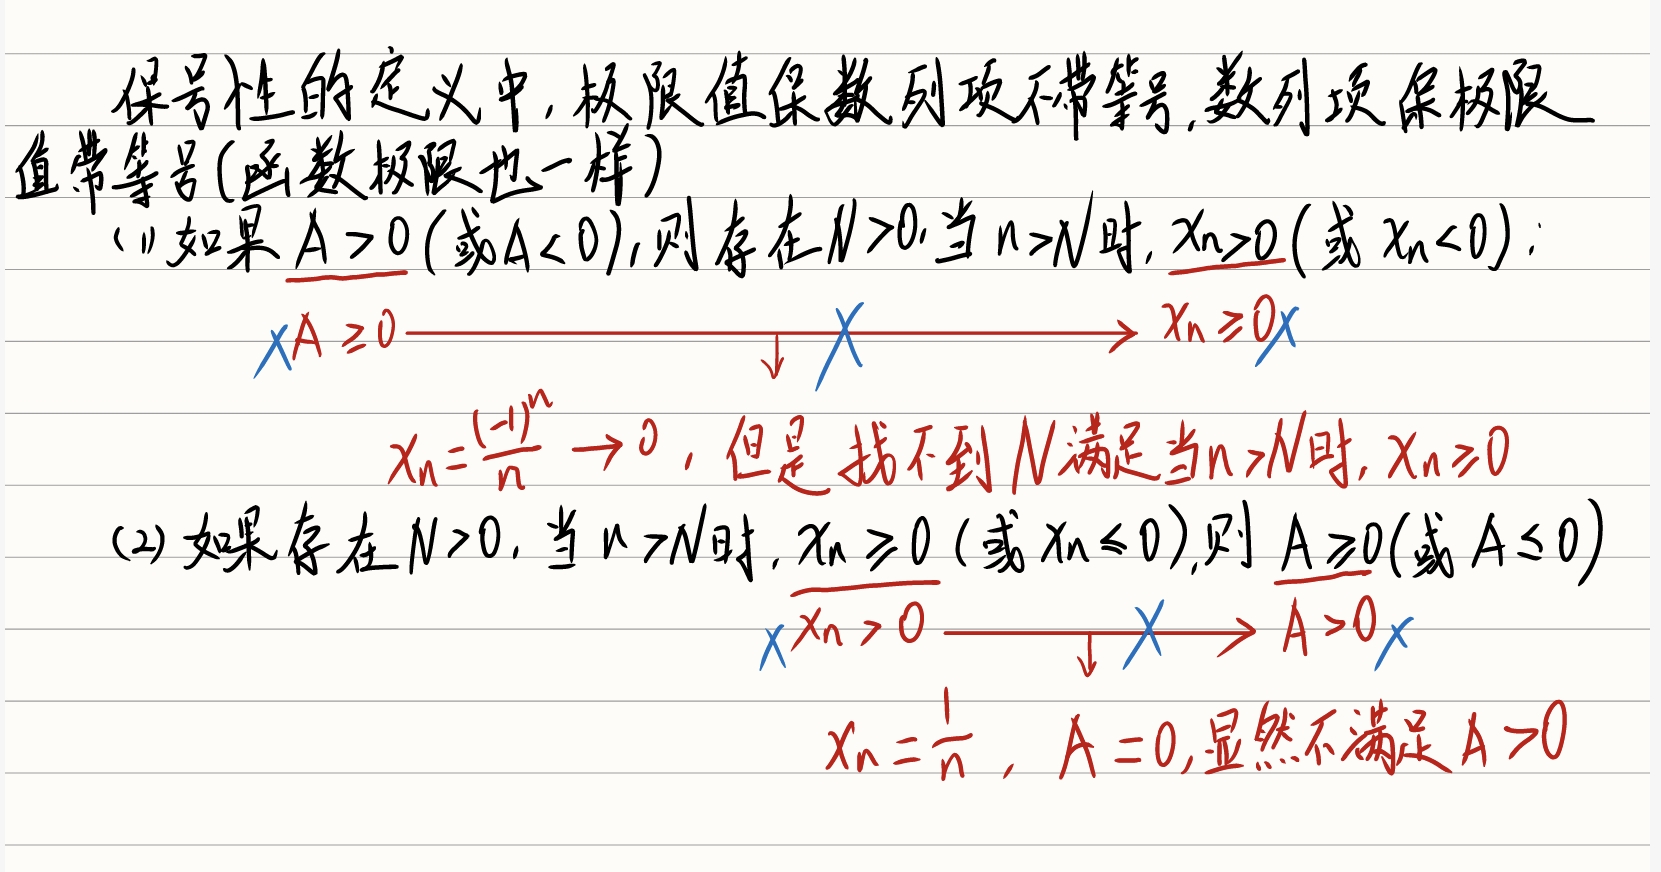 保号性的定义中,极限值保数列项不带等号,数列项保极限
值带等号(函数极限也一样)
(1)如果 A>0(或A<0),则存在N>0,当n>N时,xn>0(或 xn<0);
xA≥0 → X xn≥0x
xn=(-1)^n/n→0,但是找不到N满足当n>N时,xn≥0
(2)如果存在N>0,当n>N时,xn≥0(或xn≤0),则 A≥0(或A≤0)
x xn>0 → X A>0x
xn=1/n, A=0,显然不满足A>0